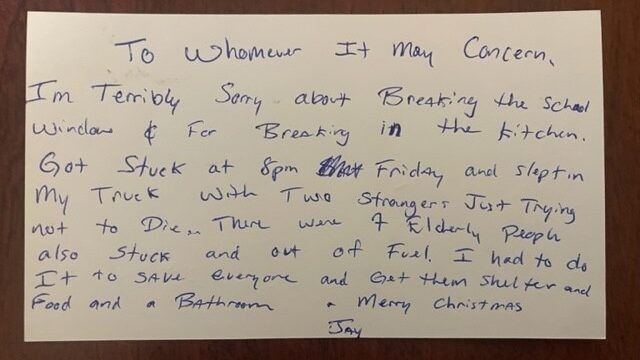 To Whomever It May Concern,
I'm Terribly Sorry about Breaking the School
Window & For Breaking in the Kitchen.
Got Stuck at 8pm Friday and slept in
My Truck with Two Strangers Just Trying
not to Die.. There were 7 Elderly People
also Stuck and out of Fuel. I had to do
It to SAVE everyone and Get them shelter and
Food and a Bathroom - Merry Christmas
Jay